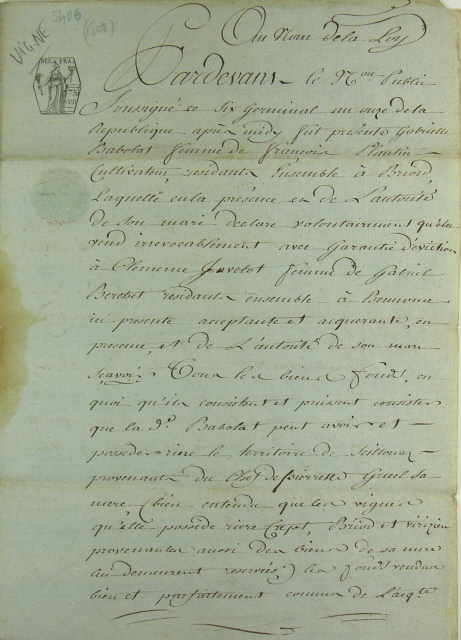 VIGNE 5406
REP. FRA.
75
Au Nom de la Loy
Pardevant le N.re Public
Soussigné ce Six Germinal an onze de la
Republique après midy fut presente Gabrielle
Babolat femme de françois Plantin
Cultivateur residants Ensemble à Briod
Laquelle en la présence et de L'autorité
de son mari declare volontairement qu'elle
vend irrevocablement avec Garantie d'eviction
à Clemence Javelot femme de Gabriel
Berthet residants ensemble à
ici presente acceptante et acquerante, en
presence, et de L'autorité de son mari
Scavoir Tous les biens fonds, en
quoi qu'ils consistent et puissent consister
que la d.e Babolat peut avoir et
posseder riere le territoire de
provenants du Chef de pierrette Gruel sa
mere (bien entendu que les vignes
qu'elle possede riere Crept, Briod et
provenantes aussi des biens de sa mere
lui demeurent reservées) les fonds vendus
bien et parfaitement connus de L'acq.te